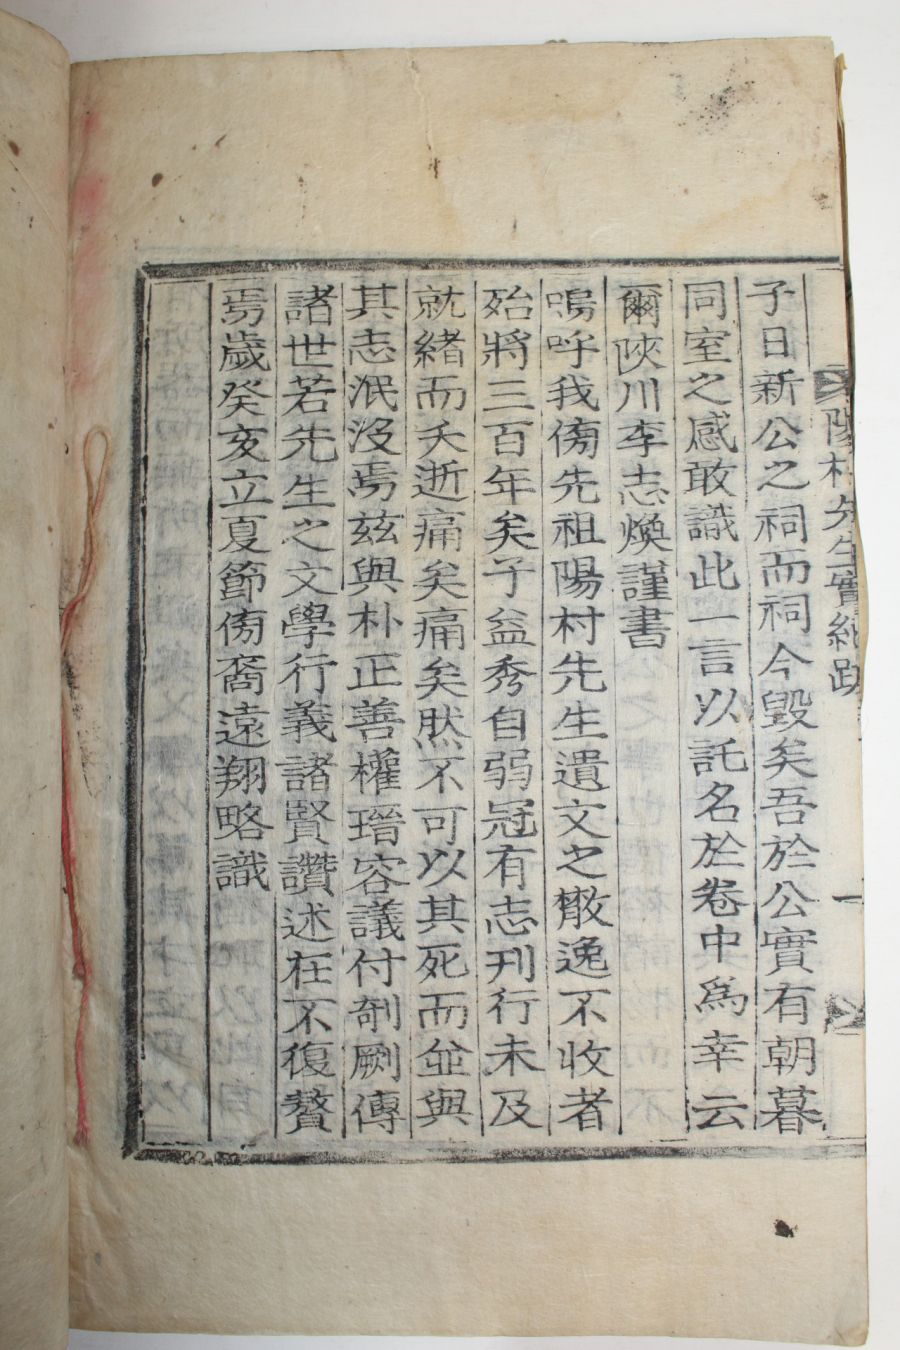 陽村先生實紀跋 一
子日新公之祠而祠今毁矣吾於公實有朝暮
同室之感敢識此一言以託名於卷中爲幸云
爾陜川李志煥謹書
嗚呼我傍先祖陽村先生遺文之散逸不收者
殆將三百年矣子益秀自弱冠有志刊行未及
就緖而夭逝痛矣痛矣然不可以其死而並與
其志泯没焉玆與朴正善權瑨容議付剞劂傳
諸世若先生之文學行義諸賢讚述在不復贅
焉歲癸亥立夏節傍裔遠翔略識